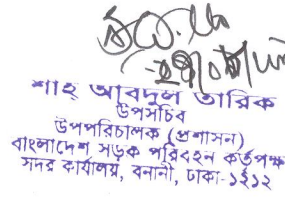 শাহ্ আবদুল তারিক
উপসচিব
উপপরিচালক (প্রশাসন)
বাংলাদেশ সড়ক পরিবহন কর্তৃপক্ষ
সদর কার্যালয়, বনানী, ঢাকা-১২১২